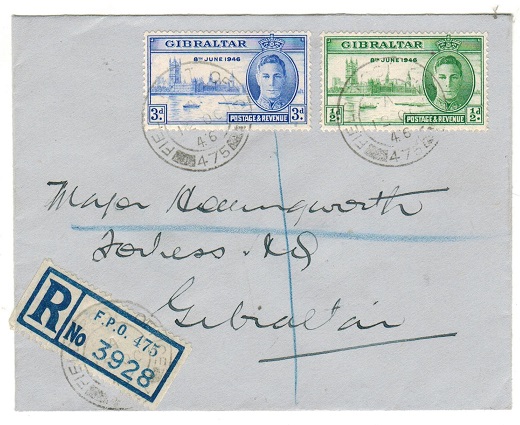 GIBRALTAR
8TH JUNE 1946
3d.
POSTAGE & REVENUE
3d.
GIBRALTAR
8TH JUNE 1946
½d.
POSTAGE & REVENUE
½d.
46
475
46
475
Major Hollingworth
Fortress. HQ
Gibraltar
R
F.P.O. 475
No 3928